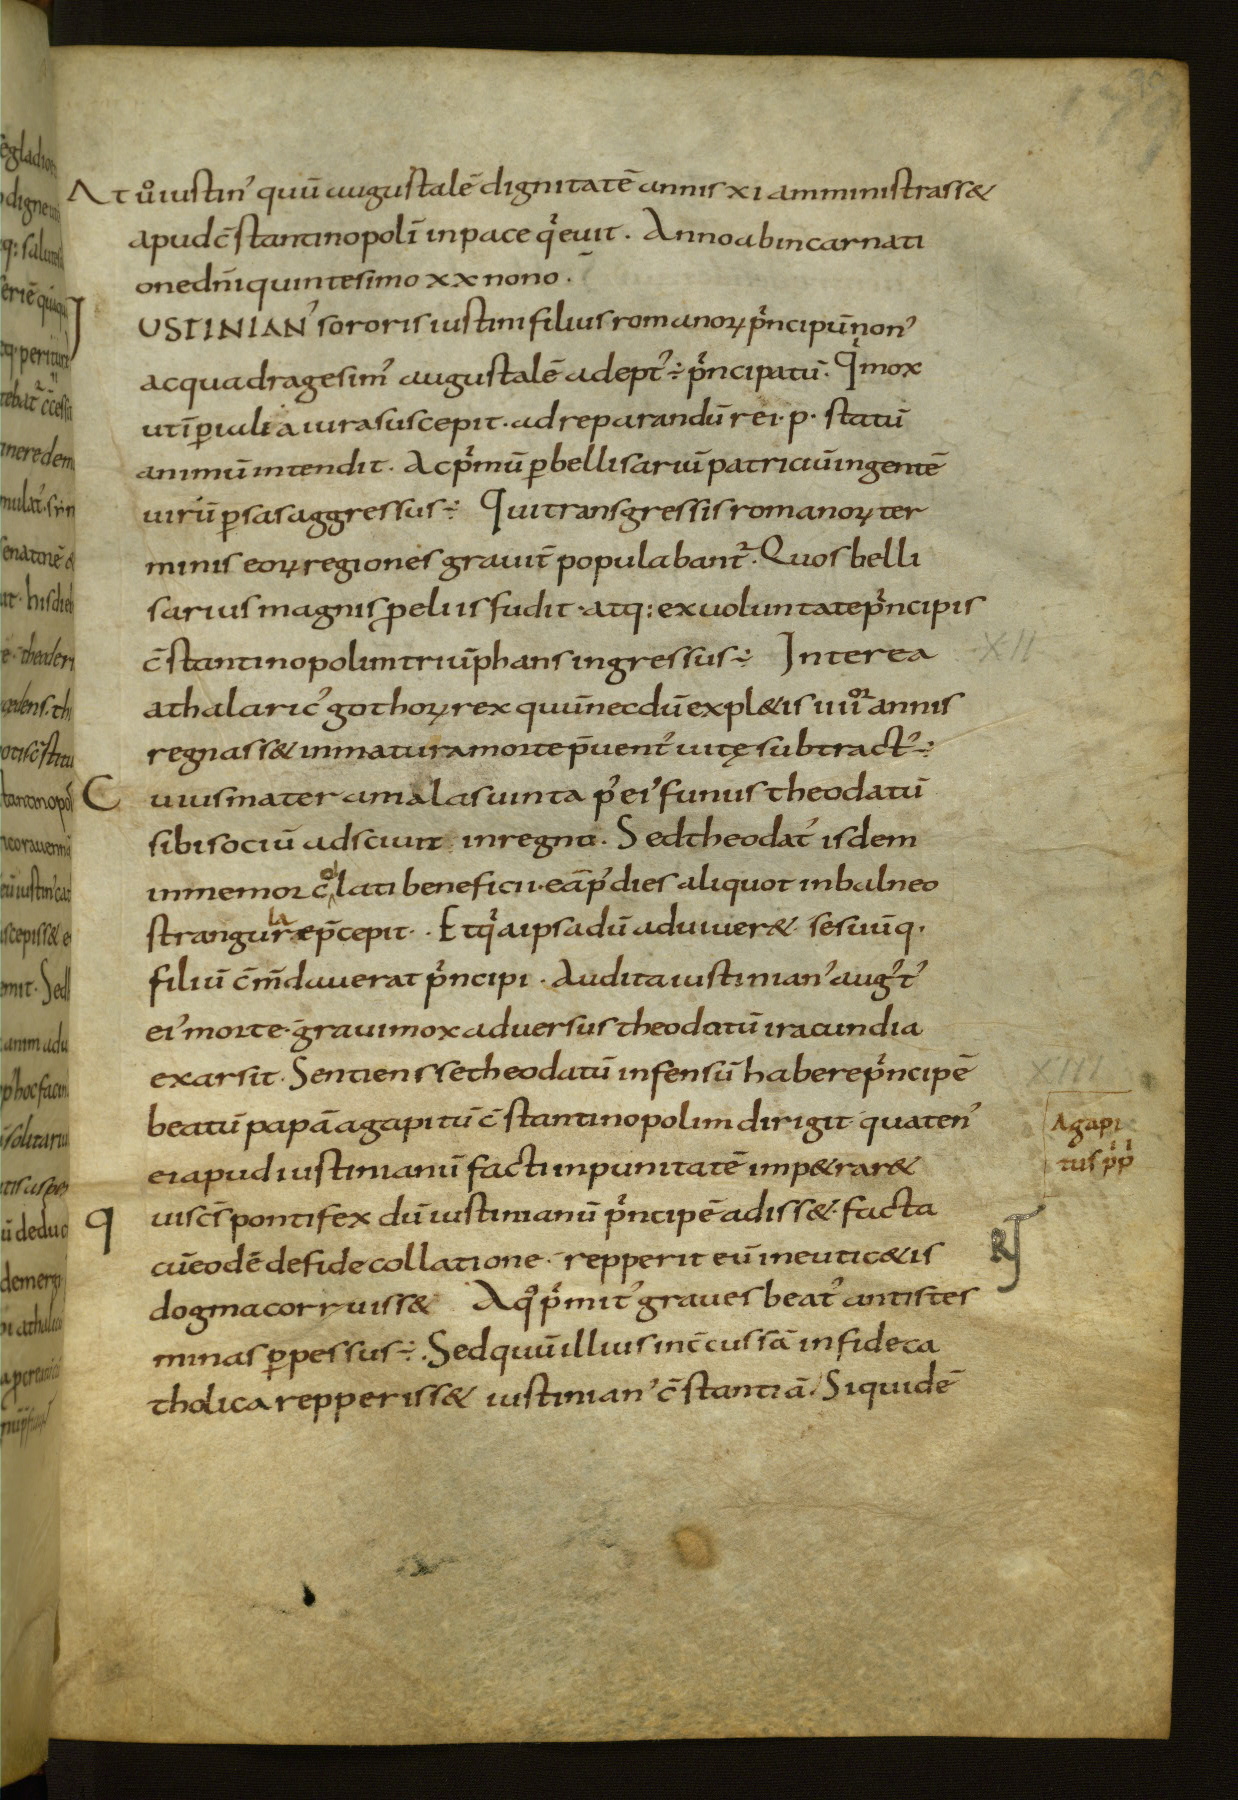 At u͛o iustin᾽ quū augustalē dignitatē annis xi amministrass&
apud c̄stantinopolī in pace qͥeuit. Anno ab incarnati
one dn̄i quintesimo xx nono.
IUSTINIAN᾽ sororis iustini filius romanoꝝ pͥncipū non᾽
ac quadragesim᾽ augustalē adept᾽ ÷ pͥncipatū. Qͥ mox
ut īꝑialia iura suscepit. ad reparandū rei. p. statū
animū intendit. Ac pͥmū ꝑ bellisariū patriciū ingentē
uirū ꝑsas aggressus ÷ Qui transgressis romanoꝝ ter
minis eoꝝ regiones grauit̄ populabant᷑. Quos belli
sarius magnis p̄eliis fudit. atq: ex uoluntate pͥncipis
c̄stantinopolim triūphans ingressus ÷ Interea
athalaric᾽ gothoꝝ rex quū necdū expl&is iiiiᵒʳ annis
regnass& inmatura morte p̄uent᾽ uitę subtract᾽ ÷
Cuius mater amalasuinta p᾽ ei᾽ funus theodatū
sibi sociū adsciuit in regno. Sed theodat᾽ isdem
inmemor c̄ˡlati beneficii. eā p᾽ dies aliquot in balneo
strangulare p̄cepit. Et qͥa ipsa dū aduiuer& se suūq.
filiū c̄m̄dauerat pͥncipi. Audita iustinian᾽ aug᾽t᾽
ei᾽ morte. graui mox aduersus theodatū iracundia
exarsit. Sentiens se theodatū infensū habere pͥncipē
beatū papā agapitū c̄stantinopolim dirigit. quaten᾽
ei apud iustinianū facti inpunitatē imp&rar&
Qui sc̄s pontifex dū iustinianū pͥncipē adiss&. facta
cū eodē de fide collatione. repperit eū in eutic&is
dogma corruiss& A qͦ pͥmit᾽ graues beat᾽ antistes
minas ꝑpessus ÷. Sed quū illius inc̄cussā in fide ca
tholica repperiss& iustinian᾽ c̄stantiā. Siquidē
XII
XIII
Agapi
tus pp